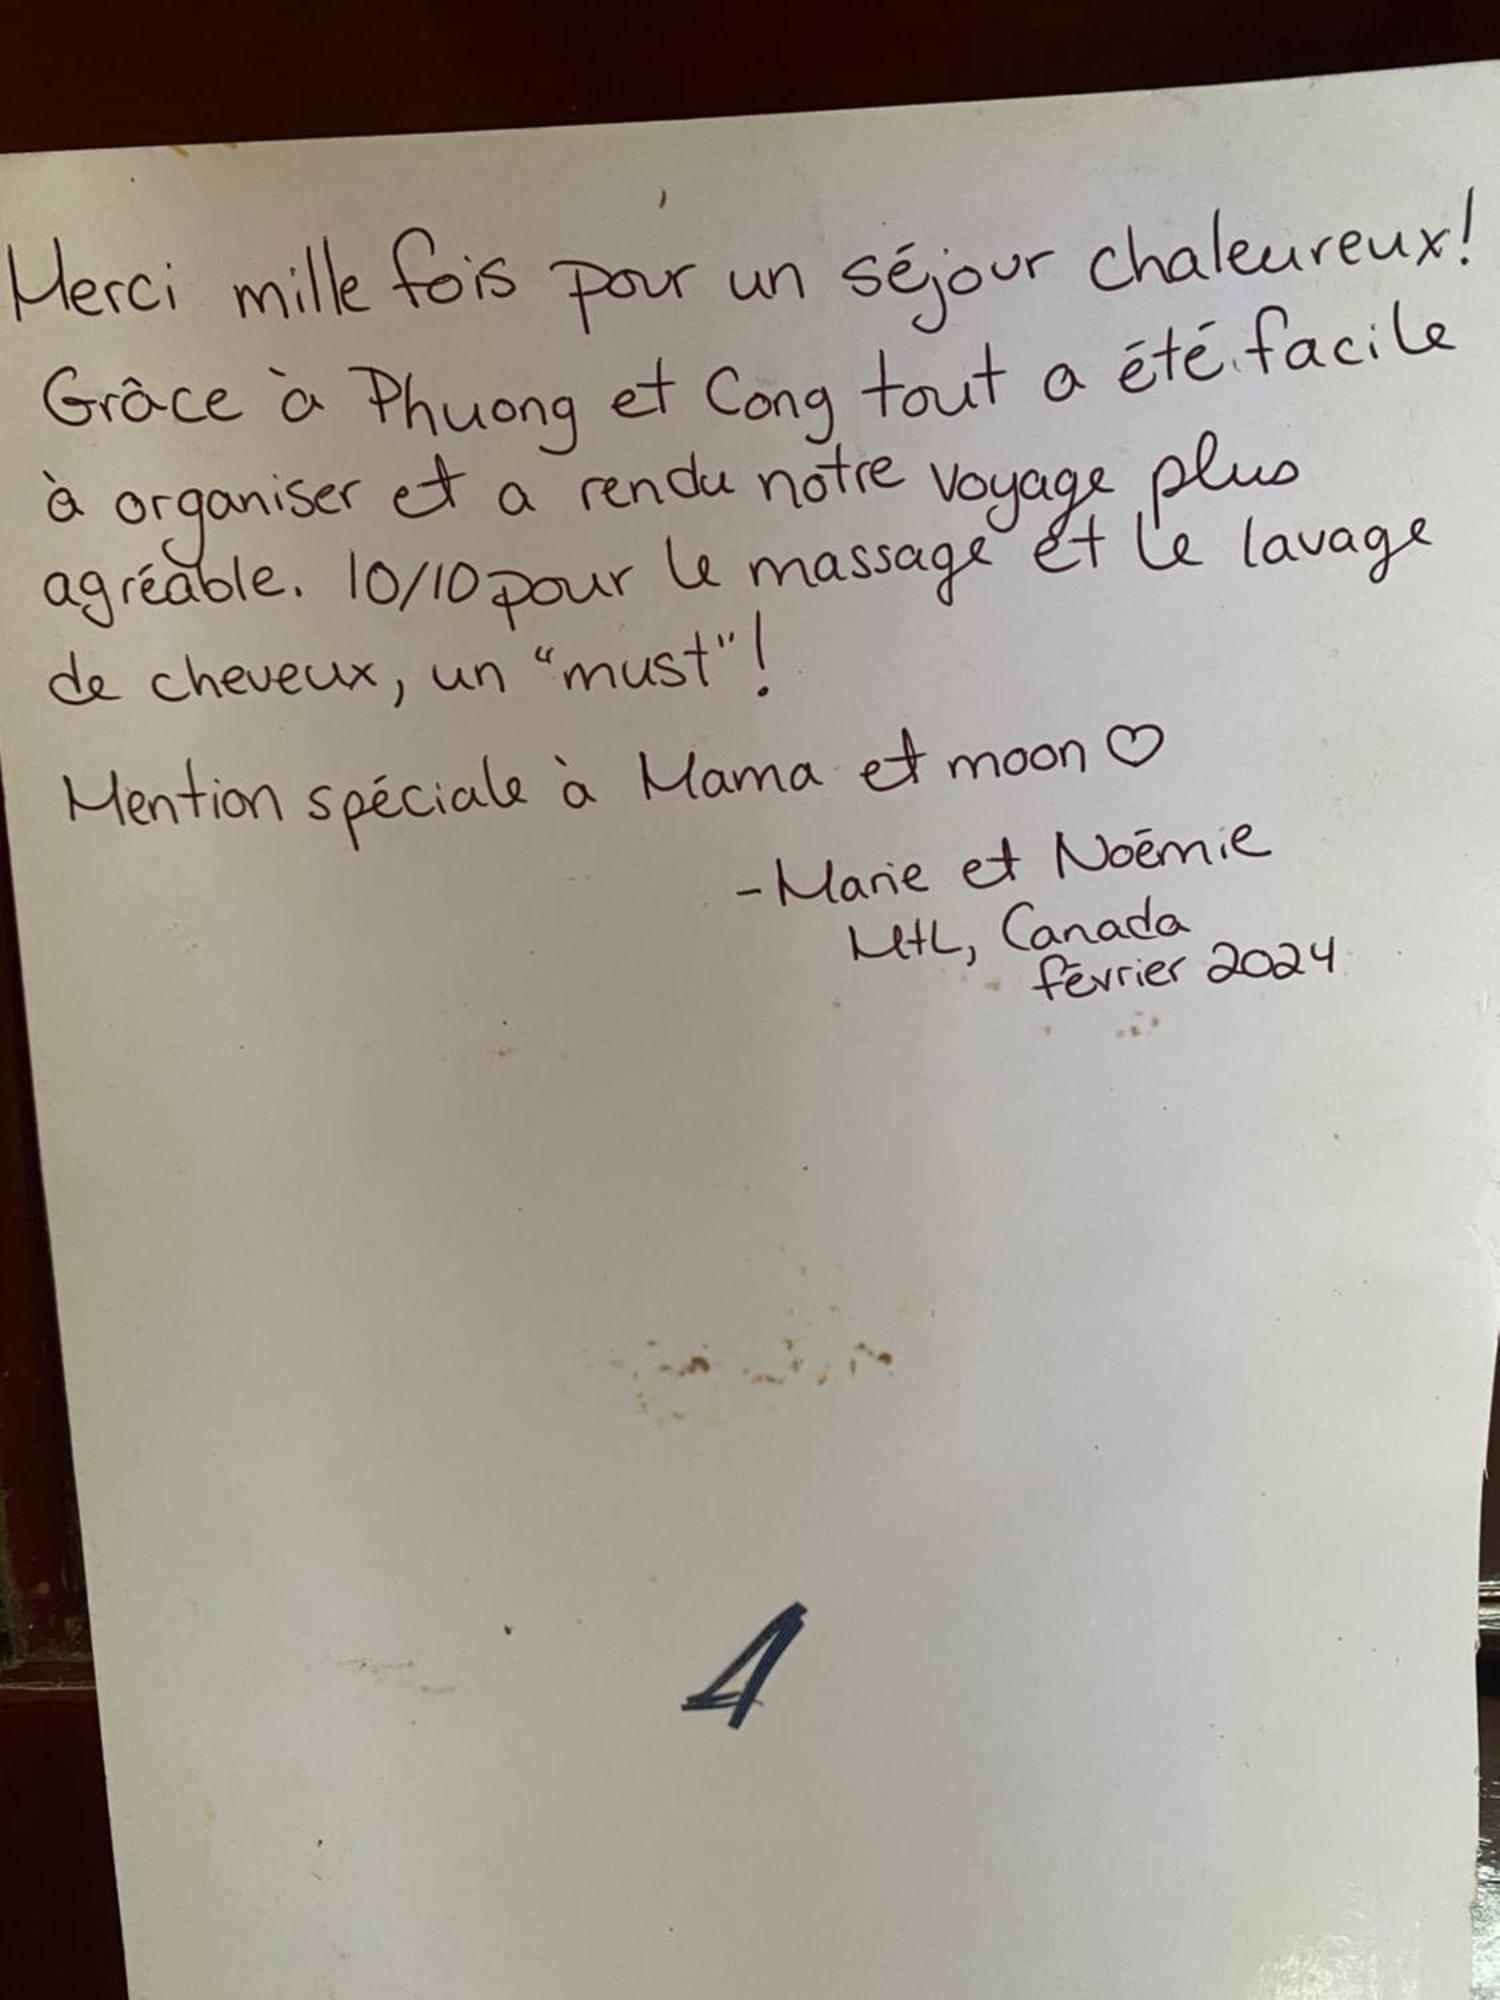 Merci mille fois pour un séjour chaleureux!
Grâce à Phuong et Cong tout a été facile
à organiser et a rendu notre voyage plus
agréable. 10/10 pour le massage et le lavage
de cheveux, un "must"!
Mention spéciale à Mama et moon ♡
- Marie et Noémie
MtL, Canada
février 2024
4